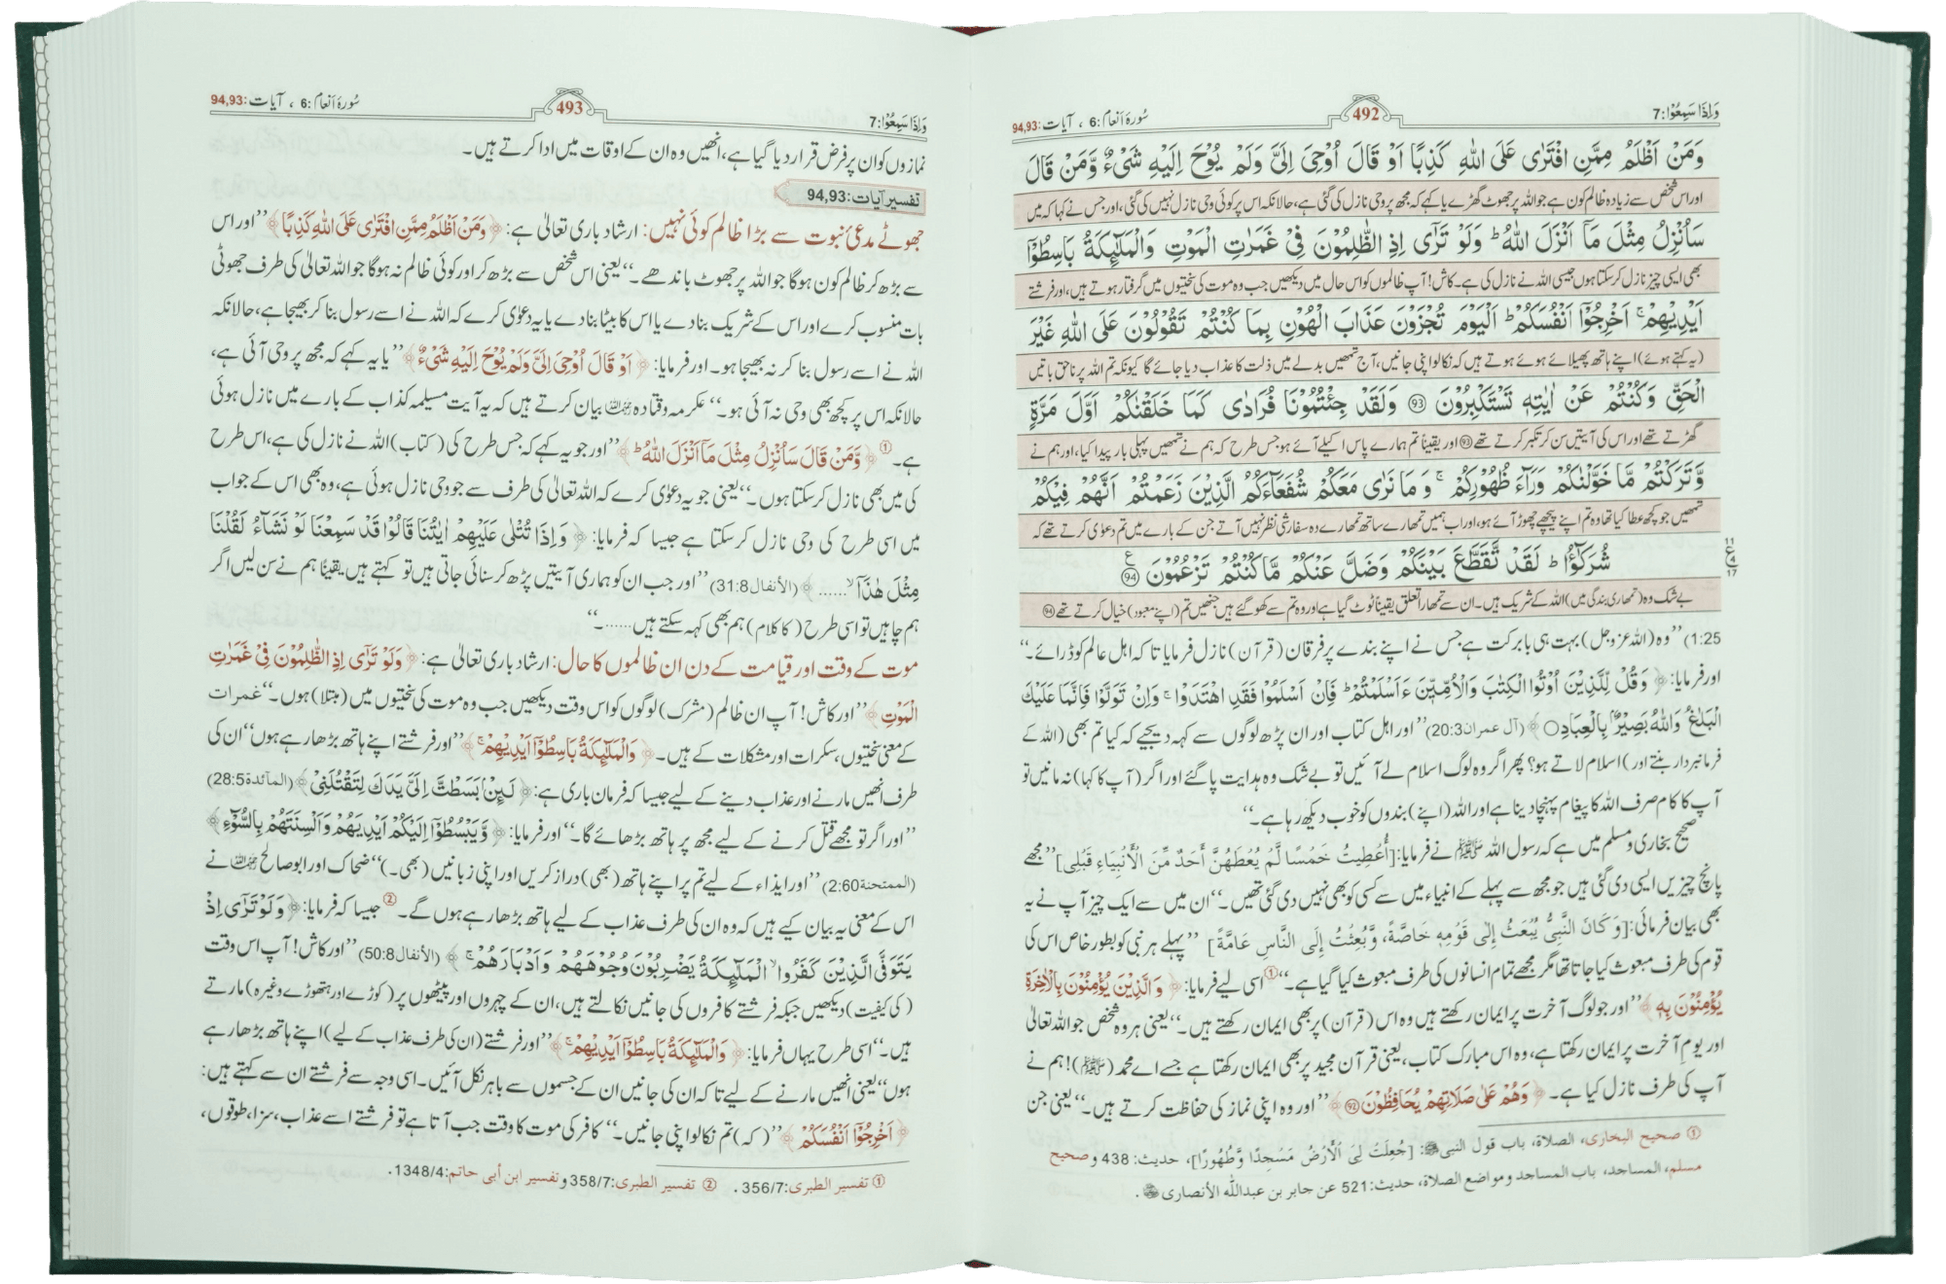 وَاِذَا سَمِعُوْا:7
492
سُورۂ اَنعام :6 ، آیات:94,93
وَمَنْ اَظْلَمُ مِمَّنِ افْتَرٰى عَلَى اللّٰهِ كَذِبًا اَوْ قَالَ اُوْحِيَ اِلَيَّ وَلَمْ يُوْحَ اِلَيْهِ شَيْءٌ وَّمَنْ قَالَ
اور اس شخص سے زیادہ ظالم کون ہے جو اللہ پر جھوٹ گھڑے یا کہے کہ مجھ پر وحی نازل کی گئی ہے، حالانکہ اس پر کوئی وحی نازل نہیں کی گئی، اور جس نے کہا کہ میں
سَاُنْزِلُ مِثْلَ مَآ اَنْزَلَ اللّٰهُ ؕ وَلَوْ تَرٰٓى اِذِ الظّٰلِمُوْنَ فِيْ غَمَرٰتِ الْمَوْتِ وَالْمَلٰٓئِكَةُ بَاسِطُوْٓا
بھی ایسی چیز نازل کر سکتا ہوں جیسی اللہ نے نازل کی ہے۔ کاش! آپ ظالموں کو اس حال میں دیکھیں جب وہ موت کی سختیوں میں گرفتار ہوتے ہیں، اور فرشتے
اَيْدِيْهِمْ ۚ اَخْرِجُوْٓا اَنْفُسَكُمْ ؕ اَلْيَوْمَ تُجْزَوْنَ عَذَابَ الْهُوْنِ بِمَا كُنْتُمْ تَقُوْلُوْنَ عَلَى اللّٰهِ غَيْرَ
(یہ کہتے ہوئے) اپنے ہاتھ پھیلائے ہوئے ہوتے ہیں کہ نکالو اپنی جانیں، آج تمھیں بدلے میں ذلت کا عذاب دیا جائے گا کیونکہ تم اللہ پر ناحق باتیں
الْحَقِّ وَكُنْتُمْ عَنْ اٰيٰتِهٖ تَسْتَكْبِرُوْنَ ۹۳ وَلَقَدْ جِئْتُمُوْنَا فُرَادٰى كَمَا خَلَقْنٰكُمْ اَوَّلَ مَرَّةٍ
گھڑتے تھے اور اس کی آیتیں سن کر تکبر کرتے تھے ۹۳ اور یقیناً تم ہمارے پاس اکیلے آئے ہو جس طرح کہ ہم نے تمھیں پہلی بار پیدا کیا، اور ہم نے
وَّتَرَكْتُمْ مَّا خَوَّلْنٰكُمْ وَرَآءَ ظُهُوْرِكُمْ ۚ وَمَا نَرٰى مَعَكُمْ شُفَعَآءَكُمُ الَّذِيْنَ زَعَمْتُمْ اَنَّهُمْ فِيْكُمْ
تمھیں جو کچھ عطا کیا تھا وہ تم اپنے پیچھے چھوڑ آئے ہو، اور اب ہمیں تمھارے ساتھ تمھارے وہ سفارشی نظر نہیں آتے جن کے بارے میں تم دعوٰی کرتے تھے کہ
شُرَكٰٓؤُا ؕ لَقَدْ تَّقَطَّعَ بَيْنَكُمْ وَضَلَّ عَنْكُمْ مَّا كُنْتُمْ تَزْعُمُوْنَ ۹۴
بے شک وہ (تمھاری بندگی میں) اللہ کے شریک ہیں۔ ان سے تمھارا تعلق یقیناً ٹوٹ گیا ہے اور وہ تم سے کھو گئے ہیں جنھیں تم (اپنے معبود) خیال کرتے تھے ۹۴
1:25) ’’وہ (اللہ عزوجل) بہت ہی بابرکت ہے جس نے اپنے بندے پر فرقان (قرآن) نازل فرمایا تاکہ اہل عالم کو ڈرائے۔‘‘
اور فرمایا: ﴿وَقُلْ لِّلَّذِيْنَ اُوْتُوا الْكِتٰبَ وَالْاُمِّيّٖنَ ءَاَسْلَمْتُمْ ؕ فَاِنْ اَسْلَمُوْا فَقَدِ اهْتَدَوْا ۚ وَاِنْ تَوَلَّوْا فَاِنَّمَا عَلَيْكَ
الْبَلٰغُ ؕ وَاللّٰهُ بَصِيْرٌۢ بِالْعِبَادِ۝﴾ (آل عمران20:3) ’’اور اہل کتاب اور ان پڑھ لوگوں سے کہہ دیجیے کہ کیا تم بھی (اللہ کے
فرمانبردار بنتے اور) اسلام لاتے ہو؟ پھر اگر وہ لوگ اسلام لے آئیں تو بے شک وہ ہدایت پا گئے اور اگر (آپ کا کہا) نہ مانیں تو
آپ کا کام صرف اللہ کا پیغام پہنچا دینا ہے اور اللہ (اپنے) بندوں کو خوب دیکھ رہا ہے۔‘‘
صحیح بخاری و مسلم میں ہے کہ رسول اللہ ﷺ نے فرمایا: [أُعْطِيتُ خَمْسًا لَّمْ يُعْطَهُنَّ أَحَدٌ مِّنَ الْأَنْبِيَاءِ قَبْلِي] ’’مجھے
پانچ چیزیں ایسی دی گئی ہیں جو مجھ سے پہلے کے انبیاء میں سے کسی کو بھی نہیں دی گئی تھیں۔‘‘ ان میں سے ایک چیز آپ نے یہ
بھی بیان فرمائی: [وَكَانَ النَّبِيُّ يُبْعَثُ إِلَى قَوْمِهِ خَاصَّةً، وَّبُعِثْتُ إِلَى النَّاسِ عَامَّةً] ’’پہلے ہر نبی کو بطور خاص اس کی
قوم کی طرف مبعوث کیا جاتا تھا مگر مجھے تمام انسانوں کی طرف مبعوث کیا گیا ہے۔‘‘① اسی لیے فرمایا: ﴿وَالَّذِيْنَ يُؤْمِنُوْنَ بِالْاٰخِرَةِ
يُؤْمِنُوْنَ بِهٖ﴾ ’’اور جو لوگ آخرت پر ایمان رکھتے ہیں وہ اس (قرآن) پر بھی ایمان رکھتے ہیں۔‘‘ یعنی ہر وہ شخص جو اللہ تعالیٰ
اور یوم آخرت پر ایمان رکھتا ہے، وہ اس مبارک کتاب، یعنی قرآن مجید پر بھی ایمان رکھتا ہے جسے اے محمد (ﷺ)! ہم نے
آپ کی طرف نازل کیا ہے۔ ﴿وَهُمْ عَلٰى صَلَاتِهِمْ يُحَافِظُوْنَ۹۲﴾ ’’اور وہ اپنی نماز کی حفاظت کرتے ہیں۔‘‘ یعنی جن
① صحيح البخاري، الصلاة، باب قول النبي ﷺ: [جُعِلَتْ لِيَ الْأَرْضُ مَسْجِدًا وَّطَهُورًا]، حديث: 438 و صحيح
مسلم، المساجد، باب المساجد ومواضع الصلاة، حديث:521 عن جابر بن عبدالله الأنصاري .
وَاِذَا سَمِعُوْا:7
493
سُورۂ اَنعام :6 ، آیات:94,93
نمازوں کو ان پر فرض قرار دیا گیا ہے، انھیں وہ ان کے اوقات میں ادا کرتے ہیں۔
تفسیر آیات:94,93
جھوٹے مدعیٔ نبوت سے بڑا ظالم کوئی نہیں: ارشاد باری تعالیٰ ہے: ﴿وَمَنْ اَظْلَمُ مِمَّنِ افْتَرٰى عَلَى اللّٰهِ كَذِبًا﴾ ’’اور اس
سے بڑھ کر ظالم کون ہوگا جو اللہ پر جھوٹ باندھے۔‘‘ یعنی اس شخص سے بڑھ کر اور کوئی ظالم نہ ہوگا جو اللہ تعالیٰ کی طرف جھوٹی
بات منسوب کرے اور اس کے شریک بنا دے یا اس کا بیٹا بنا دے یا یہ دعوٰی کرے کہ اللہ نے اسے رسول بنا کر بھیجا ہے، حالانکہ
اللہ نے اسے رسول بنا کر نہ بھیجا ہو۔ اور فرمایا: ﴿اَوْ قَالَ اُوْحِيَ اِلَيَّ وَلَمْ يُوْحَ اِلَيْهِ شَيْءٌ﴾ ’’یا یہ کہے کہ مجھ پر وحی آئی ہے،
حالانکہ اس پر کچھ بھی وحی نہ آئی ہو۔‘‘ عکرمہ و قتادہ بیان کرتے ہیں کہ یہ آیت مسیلمہ کذاب کے بارے میں نازل ہوئی
ہے۔① ﴿وَّمَنْ قَالَ سَاُنْزِلُ مِثْلَ مَآ اَنْزَلَ اللّٰهُ ؕ﴾ ’’اور جو یہ کہے کہ جس طرح کی (کتاب) اللہ نے نازل کی ہے، اس طرح
کی میں بھی نازل کر سکتا ہوں۔‘‘ یعنی جو یہ دعوٰی کرے کہ اللہ تعالیٰ کی طرف سے جو وحی نازل ہوئی ہے، وہ بھی اس کے جواب
میں اسی طرح کی وحی نازل کر سکتا ہے جیسا کہ فرمایا: ﴿وَاِذَا تُتْلٰى عَلَيْهِمْ اٰيٰتُنَا قَالُوْا قَدْ سَمِعْنَا لَوْ نَشَآءُ لَقُلْنَا
مِثْلَ هٰذَآ ۙ......﴾ (الأنفال31:8) ’’اور جب ان کو ہماری آیتیں پڑھ کر سنائی جاتی ہیں تو کہتے ہیں یقیناً ہم نے سن لیں اگر
ہم چاہیں تو اسی طرح (کا کلام) ہم بھی کہہ سکتے ہیں......۔‘‘
موت کے وقت اور قیامت کے دن ان ظالموں کا حال: ارشاد باری تعالیٰ ہے: ﴿وَلَوْ تَرٰٓى اِذِ الظّٰلِمُوْنَ فِيْ غَمَرٰتِ
الْمَوْتِ﴾ ’’اور کاش! آپ ان ظالم (مشرک) لوگوں کو اس وقت دیکھیں جب وہ موت کی سختیوں میں (مبتلا) ہوں۔‘‘ غمرات
کے معنی سختیوں، سکرات اور مشکلات کے ہیں۔ ﴿وَالْمَلٰٓئِكَةُ بَاسِطُوْٓا اَيْدِيْهِمْ ۚ﴾ ’’اور فرشتے اپنے ہاتھ بڑھا رہے ہوں‘‘ ان کی
طرف انھیں مارنے اور عذاب دینے کے لیے جیسا کہ فرمان باری ہے: ﴿لَئِنْۢ بَسَطْتَّ اِلَيَّ يَدَكَ لِتَقْتُلَنِيْ﴾ (المآئدة28:5)
’’اور اگر تو مجھے قتل کرنے کے لیے مجھ پر ہاتھ بڑھائے گا۔‘‘ اور فرمایا: ﴿وَّيَبْسُطُوْٓا اِلَيْكُمْ اَيْدِيَهُمْ وَاَلْسِنَتَهُمْ بِالسُّوْٓءِ﴾
(الممتحنة2:60) ’’اور ایذاء کے لیے تم پر اپنے ہاتھ (بھی) دراز کریں اور اپنی زبانیں (بھی۔)‘‘ ضحاک اور ابوصالح نے
اس کے معنی یہ بیان کیے ہیں کہ وہ ان کی طرف عذاب کے لیے ہاتھ بڑھا رہے ہوں گے۔② جیسا کہ فرمایا: ﴿وَلَوْ تَرٰٓى اِذْ
يَتَوَفَّى الَّذِيْنَ كَفَرُوا ۙ الْمَلٰٓئِكَةُ يَضْرِبُوْنَ وُجُوْهَهُمْ وَاَدْبَارَهُمْ ۚ﴾ (الأنفال50:8) ’’اور کاش! آپ اس وقت
(کی کیفیت) دیکھیں جبکہ فرشتے کافروں کی جانیں نکالتے ہیں، ان کے چہروں اور پیٹھوں پر (کوڑے اور ہتھوڑے وغیرہ) مارتے
ہیں۔‘‘ اسی طرح یہاں فرمایا: ﴿وَالْمَلٰٓئِكَةُ بَاسِطُوْٓا اَيْدِيْهِمْ ۚ﴾ ’’اور فرشتے (ان کی طرف عذاب کے لیے) اپنے ہاتھ بڑھا رہے
ہوں‘‘ یعنی انھیں مارنے کے لیے تاکہ ان کی جانیں ان کے جسموں سے باہر نکل آئیں۔ اسی وجہ سے فرشتے ان سے کہتے ہیں:
﴿اَخْرِجُوْٓا اَنْفُسَكُمْ﴾ ’’(کہ) تم نکالو اپنی جانیں۔‘‘ کافر کی موت کا وقت جب آتا ہے تو فرشتے اسے عذاب، سزا، طوقوں،
① تفسير الطبري:356/7. ② تفسير الطبري:358/7 وتفسير ابن أبي حاتم:1348/4.